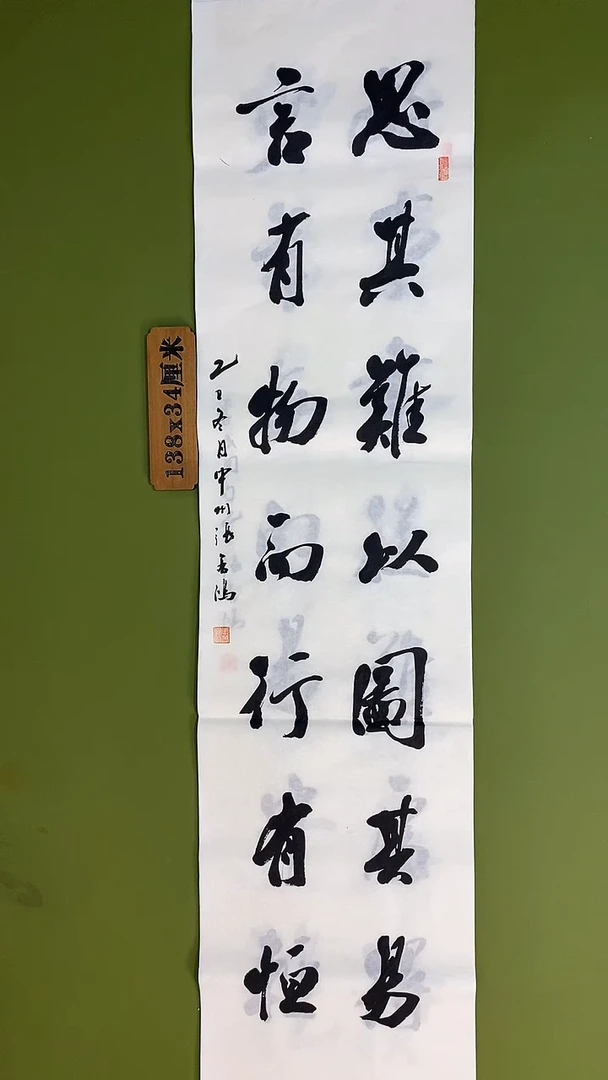 思其難以圖其易
言有物而行有恒
乙巳冬月中州張
138x34厘米